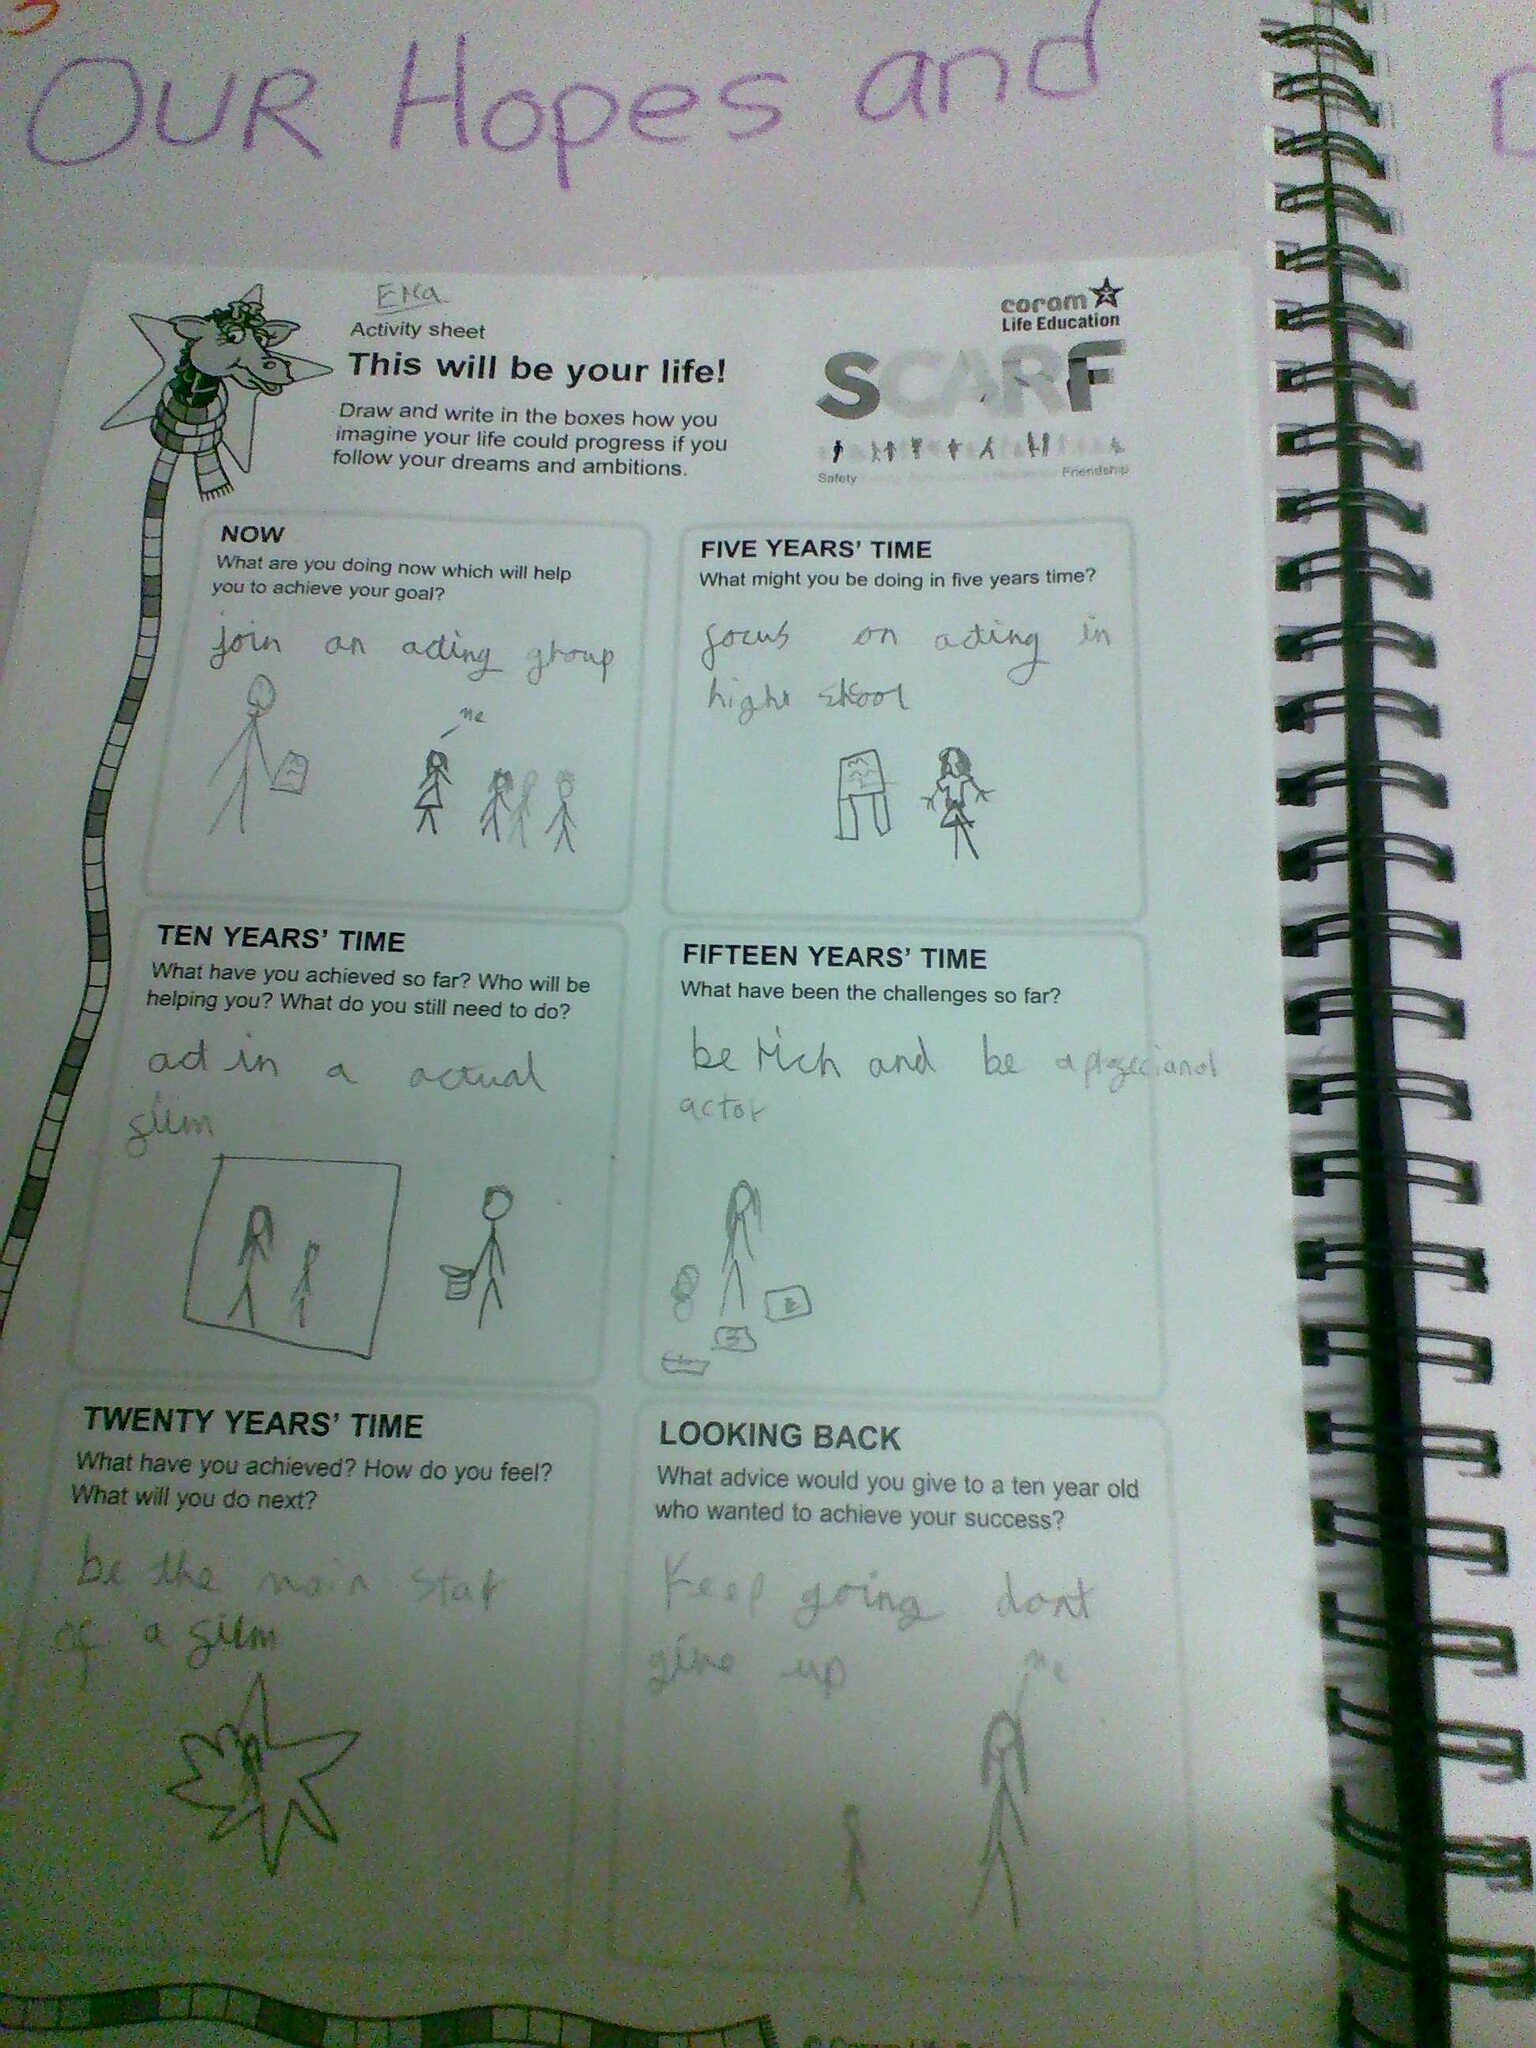 OUR Hopes and
Activity sheet
This will be your life!
Draw and write in the boxes how you
imagine your life could progress if you
follow your dreams and ambitions.
coram
Life Education
SCARF
Safety
Friendship
NOW
What are you doing now which will help
you to achieve your goal?
join an acting group
me
FIVE YEARS' TIME
What might you be doing in five years time?
focus on acting in
high skool
TEN YEARS' TIME
What have you achieved so far? Who will be
helping you? What do you still need to do?
act in a actual
film
FIFTEEN YEARS' TIME
What have been the challenges so far?
be rich and be a
actor
3
TWENTY YEARS' TIME
What have you achieved? How do you feel?
What will you do next?
be the main star
of a film
LOOKING BACK
What advice would you give to a ten year old
who wanted to achieve your success?
Keep going dont
give up
me